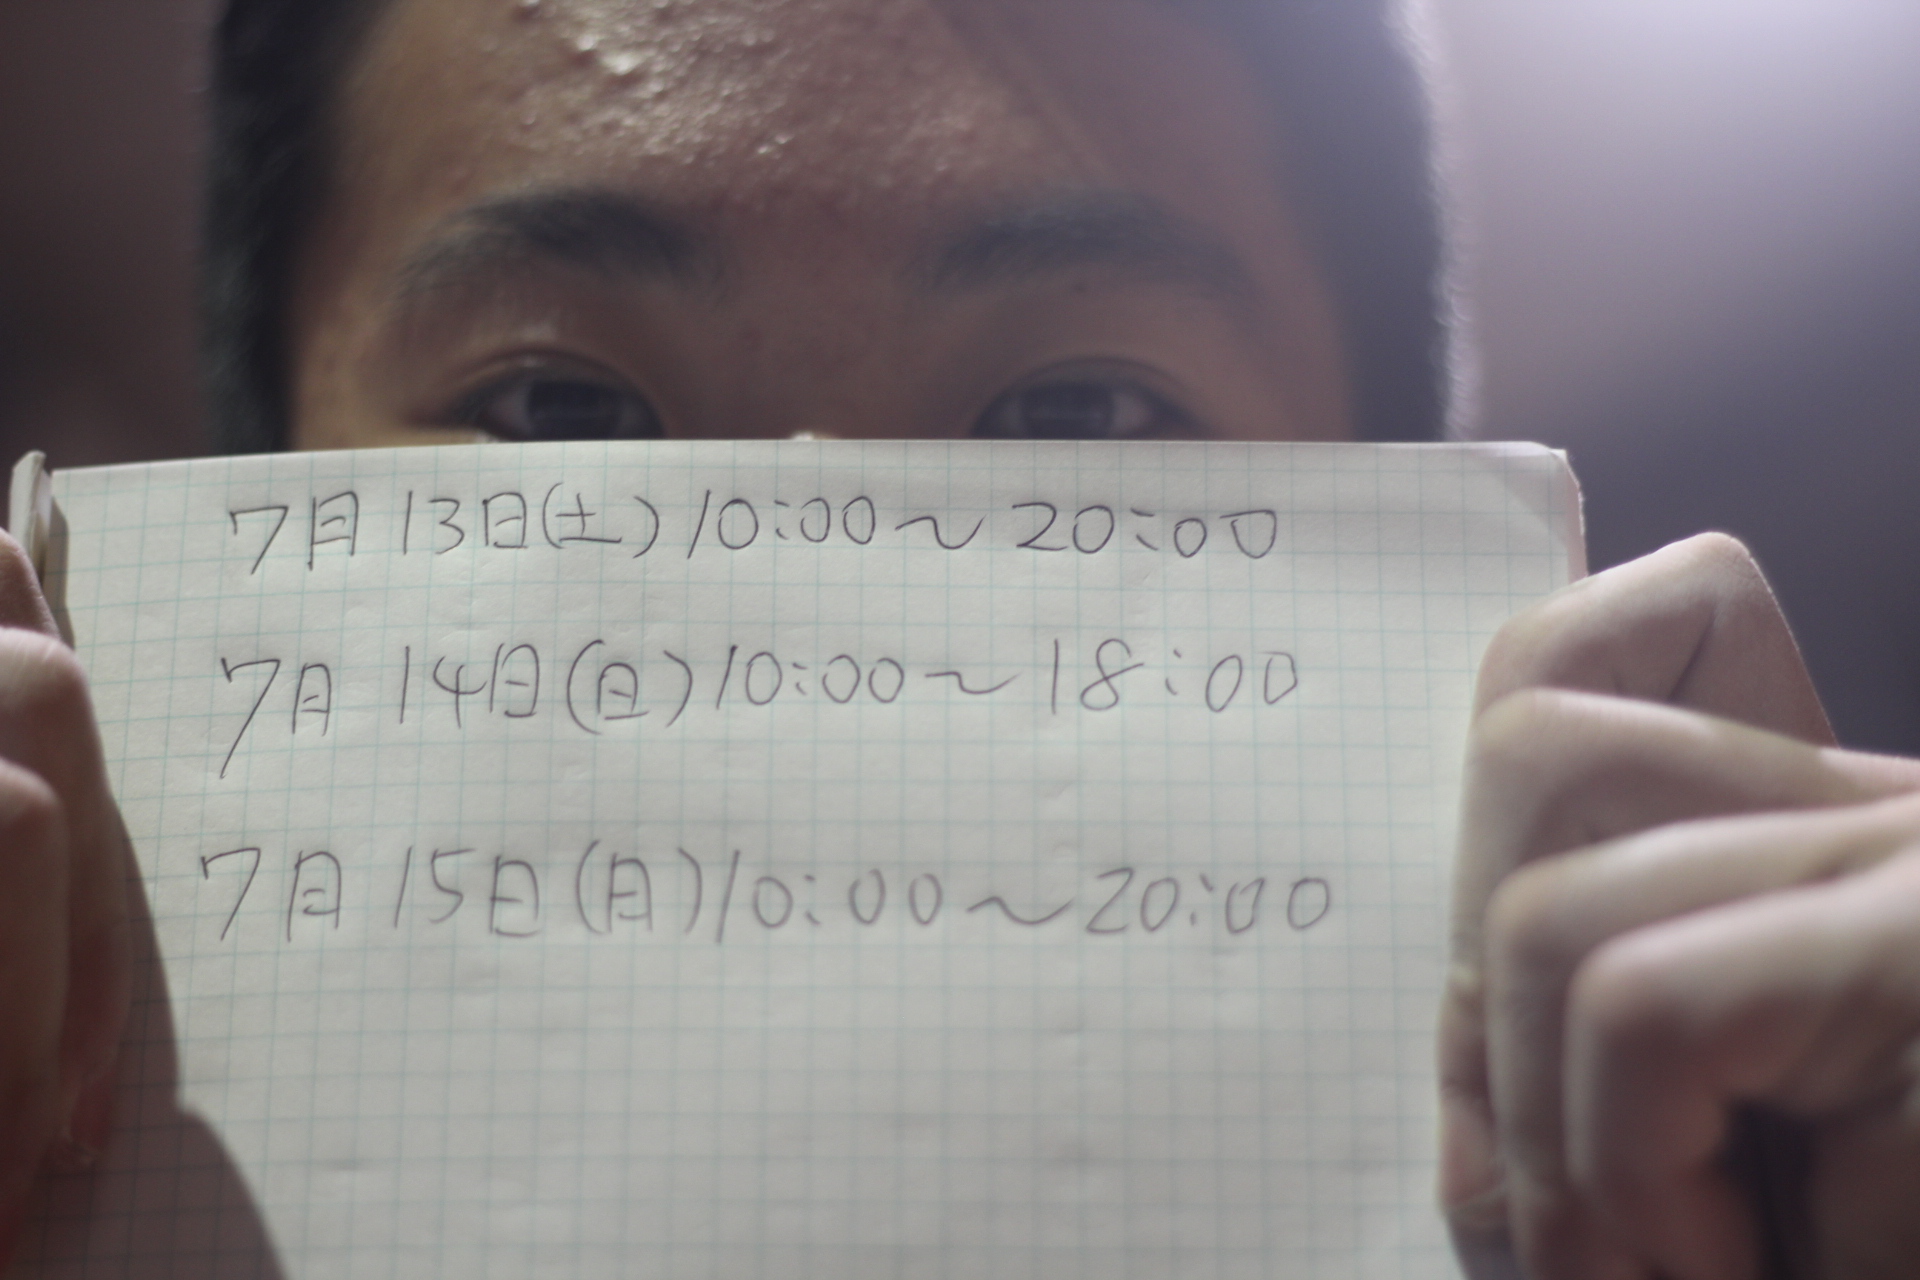 7月13日(土)10:00～20:00
7月14日(日)10:00～18:00
7月15日(月)10:00～20:00